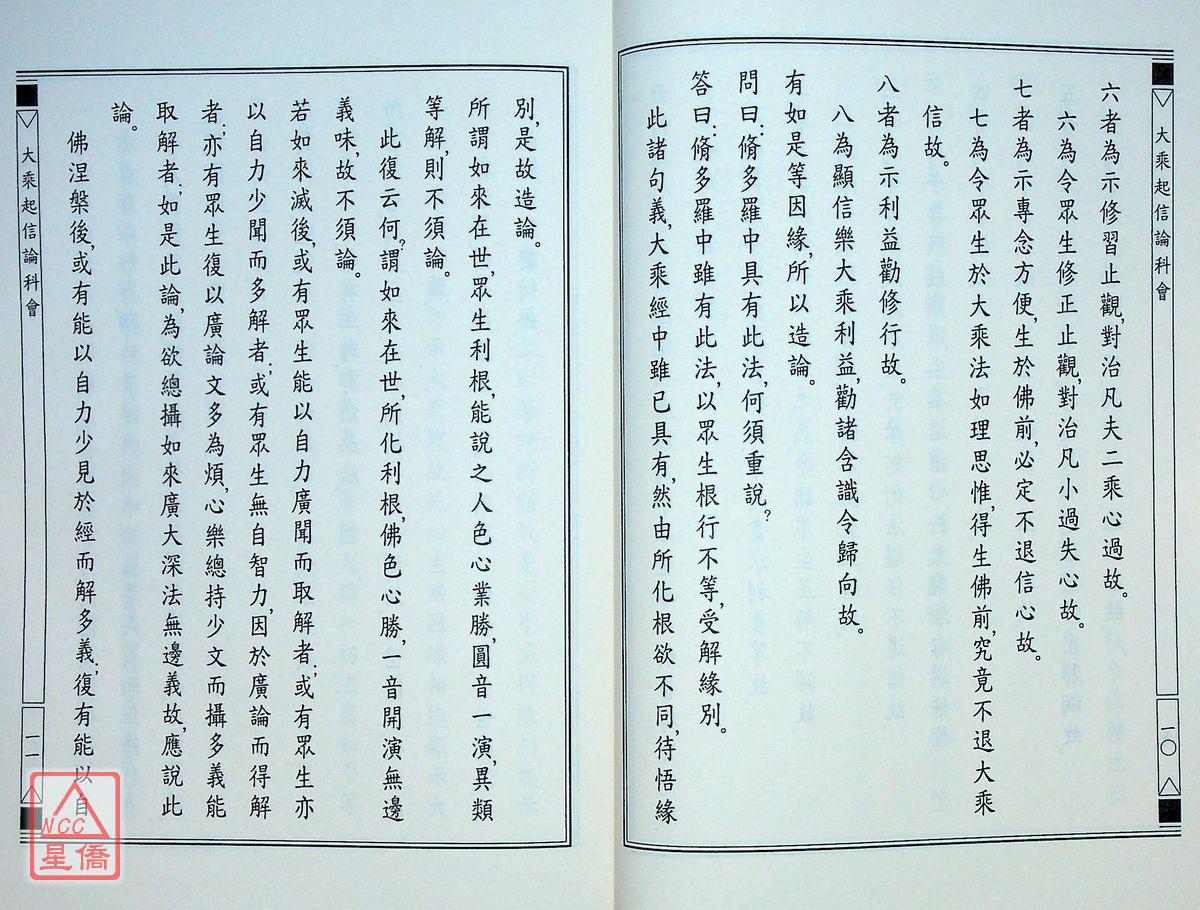 大乘起信論科會
一〇
六者為示修習止觀,對治凡夫二乘心過故。
六為令眾生修正止觀,對治凡小過失心故。
七者為示專念方便,生於佛前,必定不退信心故。
七為令眾生於大乘法如理思惟,得生佛前,究竟不退大乘
信故。
八者為示利益勸修行故。
八為顯信樂大乘利益,勸諸含識令歸向故。
有如是等因緣,所以造論。
問曰:脩多羅中具有此法,何須重說?
答曰:脩多羅中雖有此法,以眾生根行不等,受解緣別。
此諸句義,大乘經中雖已具有,然由所化根欲不同,待悟緣
別,是故造論。
所謂如來在世,眾生利根,能說之人色心業勝,圓音一演,異類
等解,則不須論。
此復云何?謂如來在世,所化利根,佛色心勝,一音開演無邊
義味,故不須論。
若如來滅後,或有眾生能以自力廣聞而取解者;或有眾生亦
以自力少聞而多解者;或有眾生無自智力,因於廣論而得解
者;亦有眾生復以廣論文多為煩,心樂總持少文而攝多義能
取解者;如是此論,為欲總攝如來廣大深法無邊義故,應說此
論。
佛涅槃後,或有能以自力少見於經而解多義;復有能以自
大乘起信論科會
一一
NCC
星僑